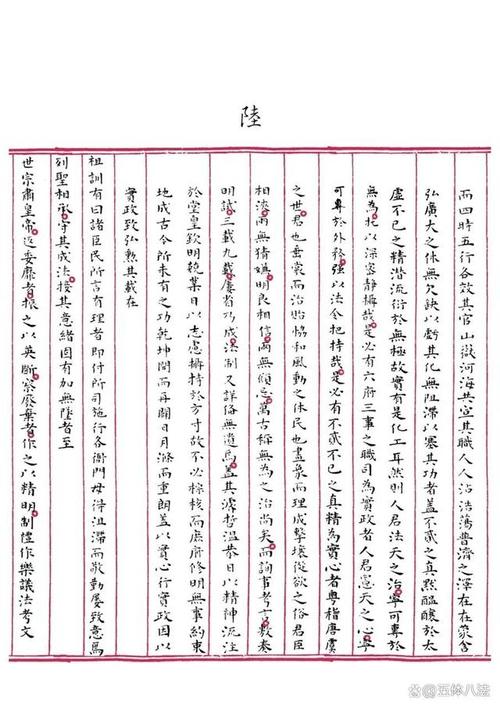 陸
而四時五行各效其官山嶽河海共宣其職人人沾浩蕩普濟之澤在在蒙含
弘廣大之休無欠缺以虧其化無阻滯以塞其功者盖不貳之真默醞釀於太
虛不已之精潛流衍於無極故實有是化工耳然則人君法天之治寧可專於
無為托以深密靜攝哉是必有六府三事之職司為實政者人君憲天之心寧
可專於外務强以法令把持哉是必有不貳不已之真精為實心者粵稽唐虞
之世君也垂裳而治貽協和風動之休民也畫象而理成擊壤從欲之俗君臣
相浹兩無猜嫌明良相信兩無顧忌萬古稱無為之治尚矣而詢事考言敷奏
明試三載九載屢省乃成法制又詳俻無遺焉盖其濬哲温恭日以精神流注
於堂皇欽明兢業日以志慮攝持於方寸故不必綜核而庶府修明無事約束
地成古今所未有之功乾坤開而再闢日月滌而重朗盖以實心行實政因以
實政致弘勲其載在
祖訓有曰諸臣民所言有理者即付所司施行各衙門毋得沮滯而敬勤屢致意焉
列聖相承守其成法接其意緒固有加無墜者至
世宗肅皇帝返委靡者振之以英斷察廢棄者作之以精明制禮作樂議法考文
@五体八法